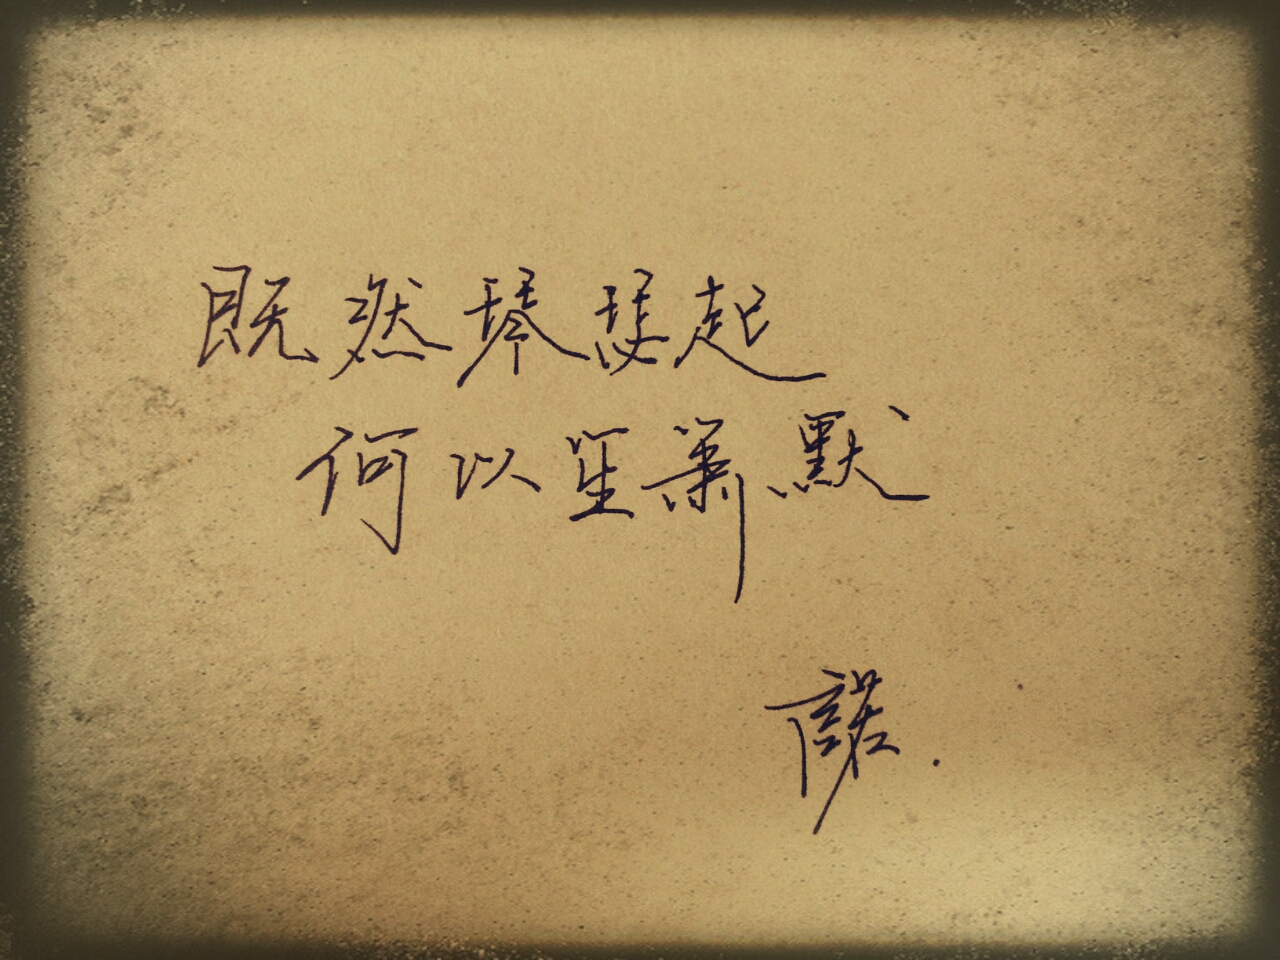 既然琴瑟起
何以笙箫默
諾.